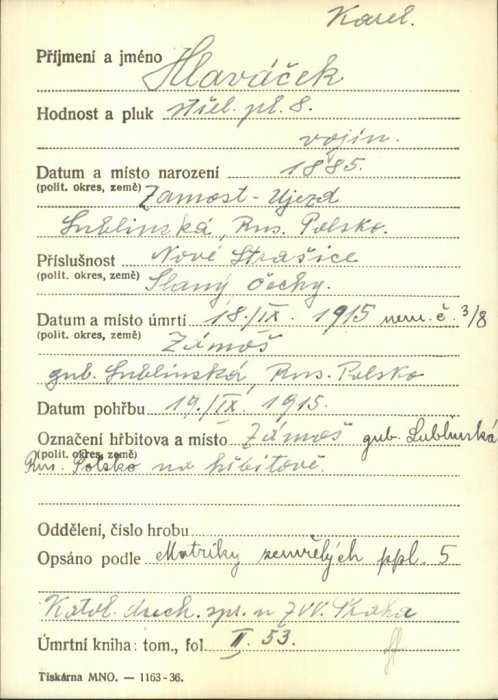 Karel.
Příjmení a jméno Hlaváček
Hodnost a pluk střel. pl. 8.
vojín.
Datum a místo narození 1885.
(polit. okres, země) Zamost - Ujezd
Lublinská, Rus. Polsko.
Příslušnost Nové Strašice
(polit. okres, země) Slaný Čechy.
Datum a místo úmrtí 18./IX. 1915 nem. č. 3/8
(polit. okres, země) Zámoš
gub. Lublinská, Rus. Polsko
Datum pohřbu 19./IX. 1915.
Označení hřbitova a místo Zámoš gub. Lublinská
(polit. okres, země) Rus. Polsko na hřbitově.
Oddělení, číslo hrobu
Opsáno podle Matriky zemřelých ppl. 5
Katol. duch. spr. u ZVV. Praha
Úmrtní kniha: tom., fol. II. 53.
Tiskárna MNO. — 1163-36.